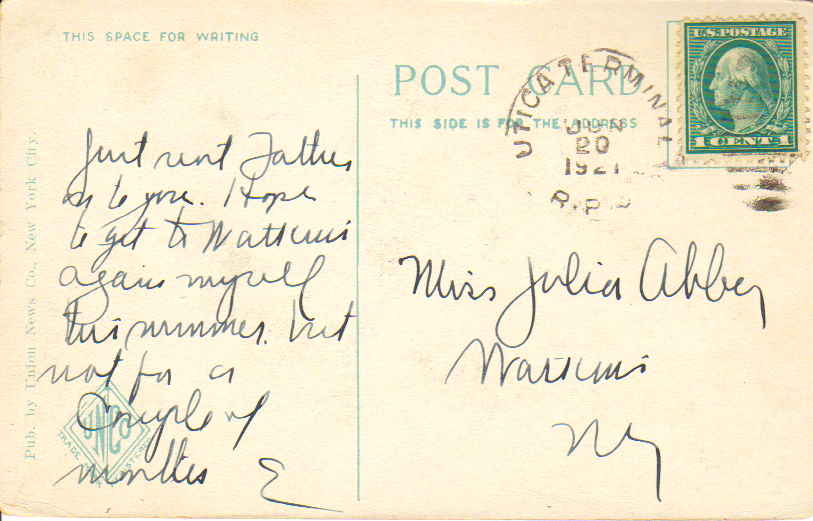 THIS SPACE FOR WRITING
POST CARD
THIS SIDE IS FOR THE ADDRESS
U.S. POSTAGE
1 CENT 1
UTICA TERMINAL
JUN
20
1921
R.P.O
Just sent Father
on to you. Hope
to get to Watkins
again myself
this summer. but
not for a
Couple of
months E
Miss Julia Abbey
Watkins
NY
Pub. by Union News Co., New York City.
TRADE